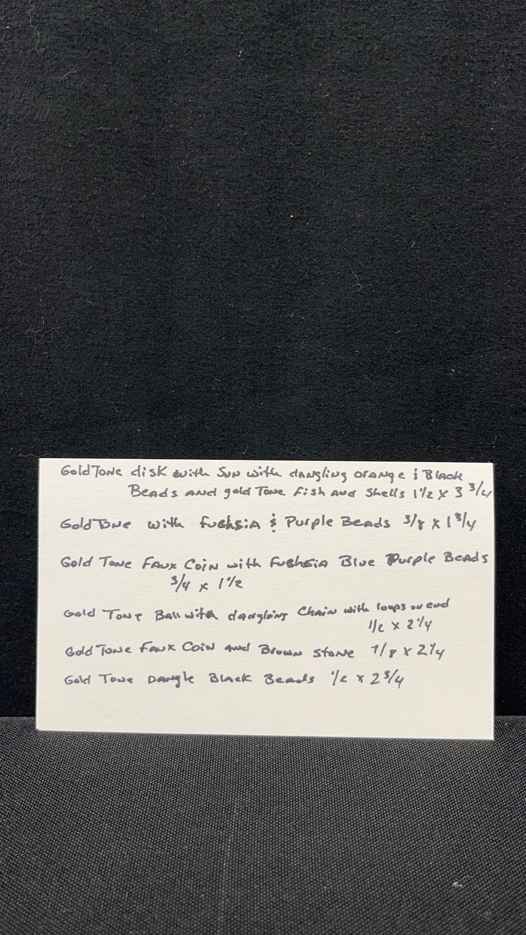 Gold Tone disk with Sun with dangling orange & Black
Beads and gold Tone Fish and Shells 1 1/2 x 3 3/4
Gold Tone with fuchsia & Purple Beads 3/8 x 1 3/4
Gold Tone Faux Coin with Fuchsia Blue Purple Beads
3/4 x 1 1/2
Gold Tone Ball with dangling Chain with loops on end
1/2 x 2 1/4
Gold Tone Faux Coin and Brown Stone 7/8 x 2 1/4
Gold Tone Dangle Black Beads 1/2 x 2 3/4